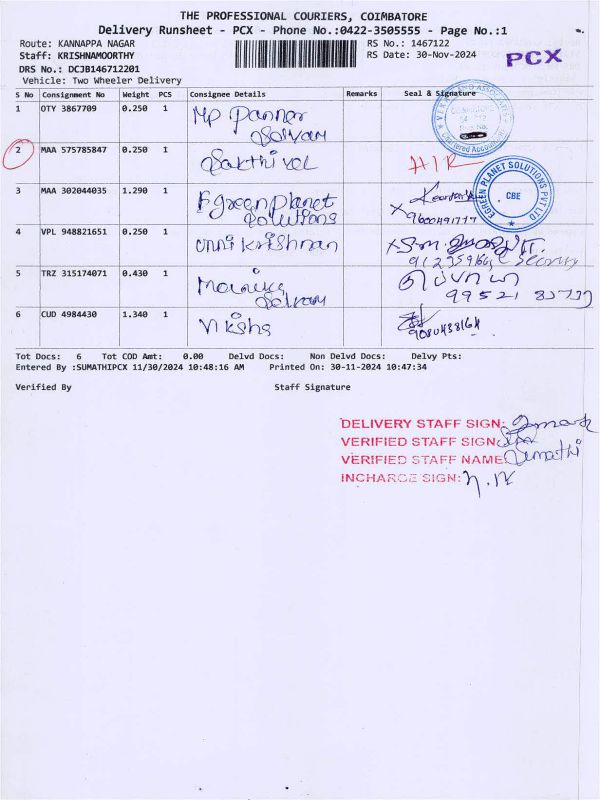 THE PROFESSIONAL COURIERS, COIMBATORE
Delivery Runsheet - PCX - Phone No.:0422-3505555 - Page No.:1
Route: KANNAPPA NAGAR
RS No.: 1467122
Staff: KRISHNAMOORTHY
RS Date: 30-Nov-2024
PCX
DRS No.: DCJB146712201
Vehicle: Two Wheeler Delivery
S No Consignment No Weight PCS Consignee Details Remarks Seal & Signature
1 OTY 3867709 0.250 1 Mp Panner Selvam
2 MAA 575785847 0.250 1 Sakthivel HIR
3 MAA 302044035 1.290 1 Egreen planet Solutions
EGREEN PLANET SOLUTIONS PVT LTD
CBE
4 VPL 948821651 0.250 1 Unni krishnan
5 TRZ 315174071 0.430 1 Selvam
6 CUD 4984430 1.340 1
Tot Docs: 6 Tot COD Amt: 0.00 Delvd Docs: Non Delvd Docs: Delvy Pts:
Entered By :SUMATHIPCX 11/30/2024 10:48:16 AM Printed On: 30-11-2024 10:47:34
Verified By Staff Signature
DELIVERY STAFF SIGN:
VERIFIED STAFF SIGN
VERIFIED STAFF NAME Sumathi
INCHARGE SIGN: